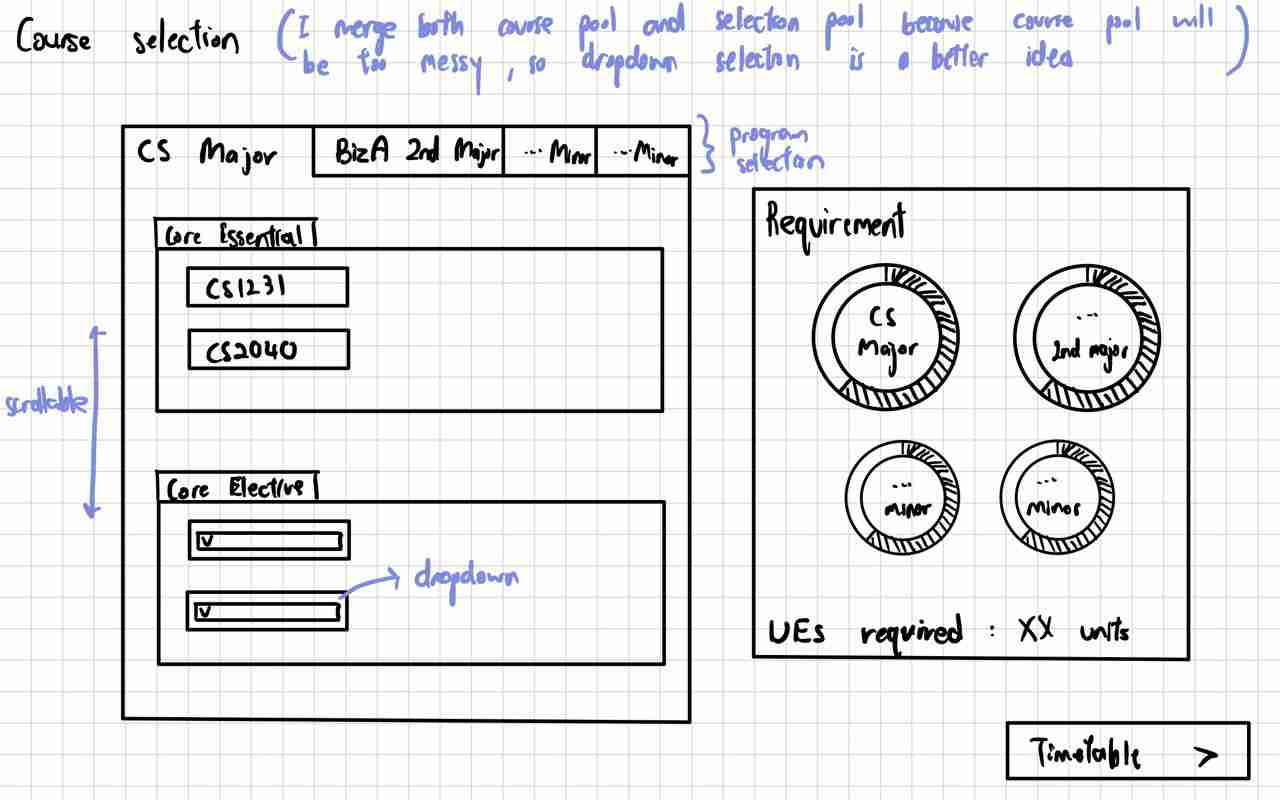 Course selection
(I merge both course pool and selection pool because course pool will
be too messy, so dropdown selection is a better idea)
CS Major
BizA 2nd Major
...Minor
...Minor
program
selection
Core Essential
CS1231
CS2040
scrollable
Core Elective
v
v
dropdown
Requirement
CS
Major
...
2nd major
...
minor
...
minor
UEs required : XX units
Timetable >